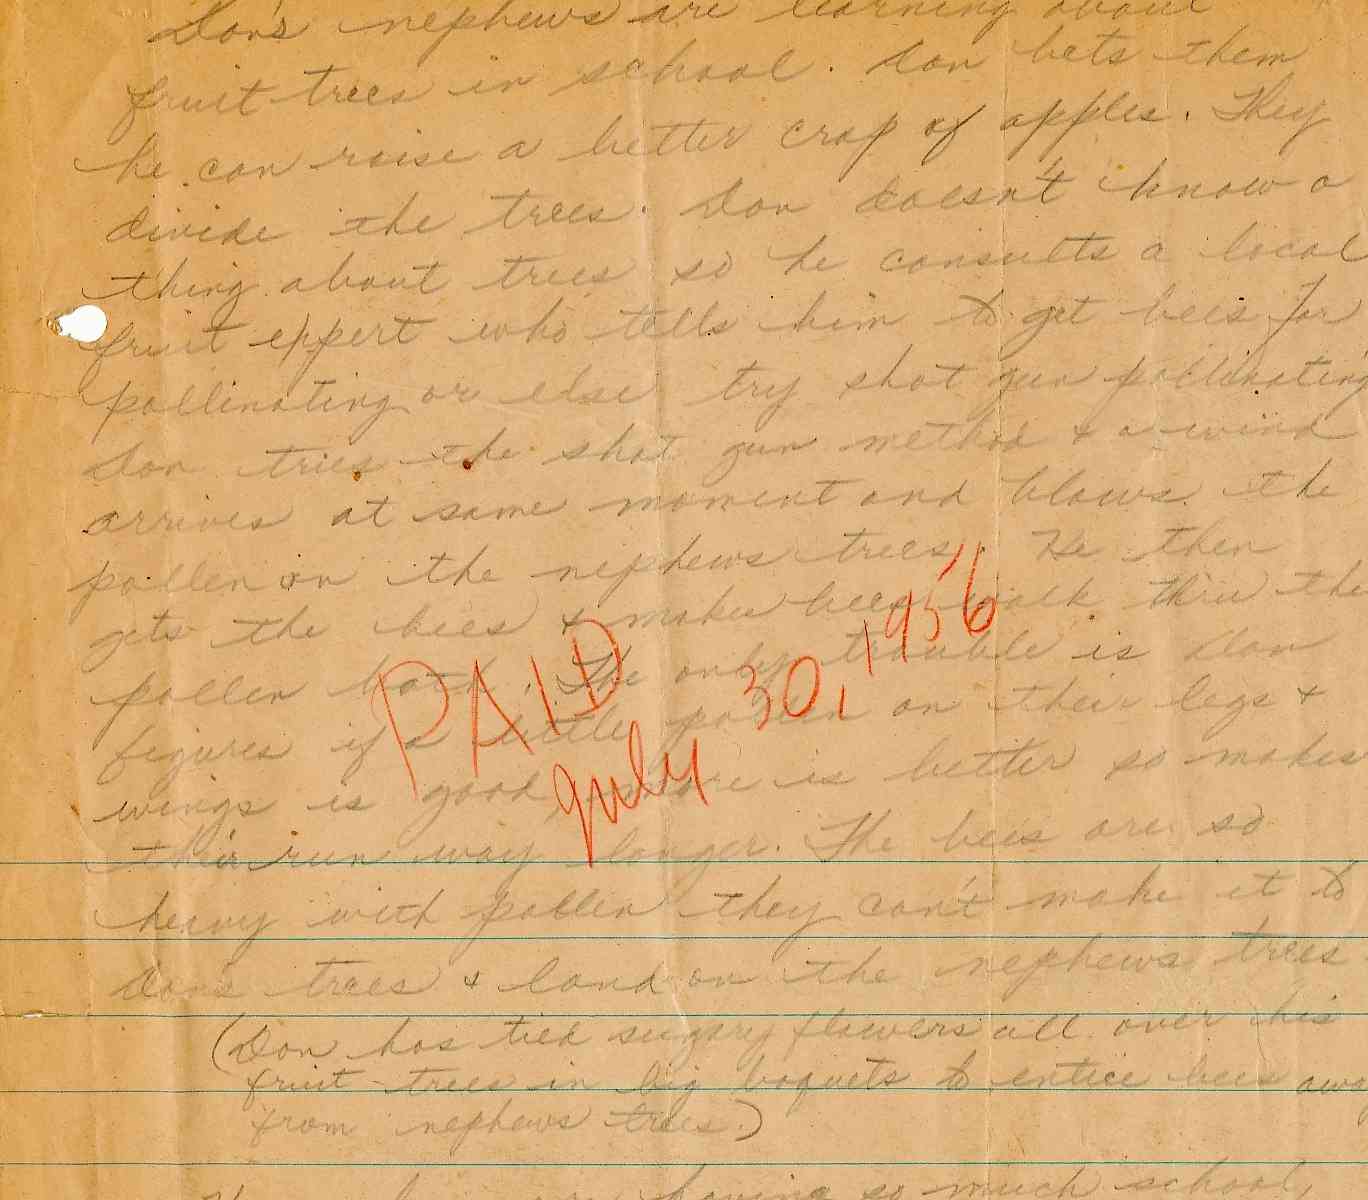 Don's nephews are learning about
fruit trees in school. Don bets them
he can raise a better crop of apples. They
divide the trees. Don doesn't know a
thing about trees so he consults a local
fruit expert who tells him to get bees for
pollinating or else try shot gun pollinating
Don tries the shot gun method & a wind
arrives at same moment and blows the
pollen on the nephews trees. He then
gets the bees & makes bees walk thru the
pollen . The only trouble is Don
figures if a little pollen on their legs &
wings is good, more is better so makes
their run way longer. The bees are so
heavy with pollen they can't make it to
Don's trees & land on the nephews trees.
(Don has tied sugary flowers all over his
fruit trees in big boquets to entice bees away
from nephews trees.)
having so much school
PAID
July 30, 1956